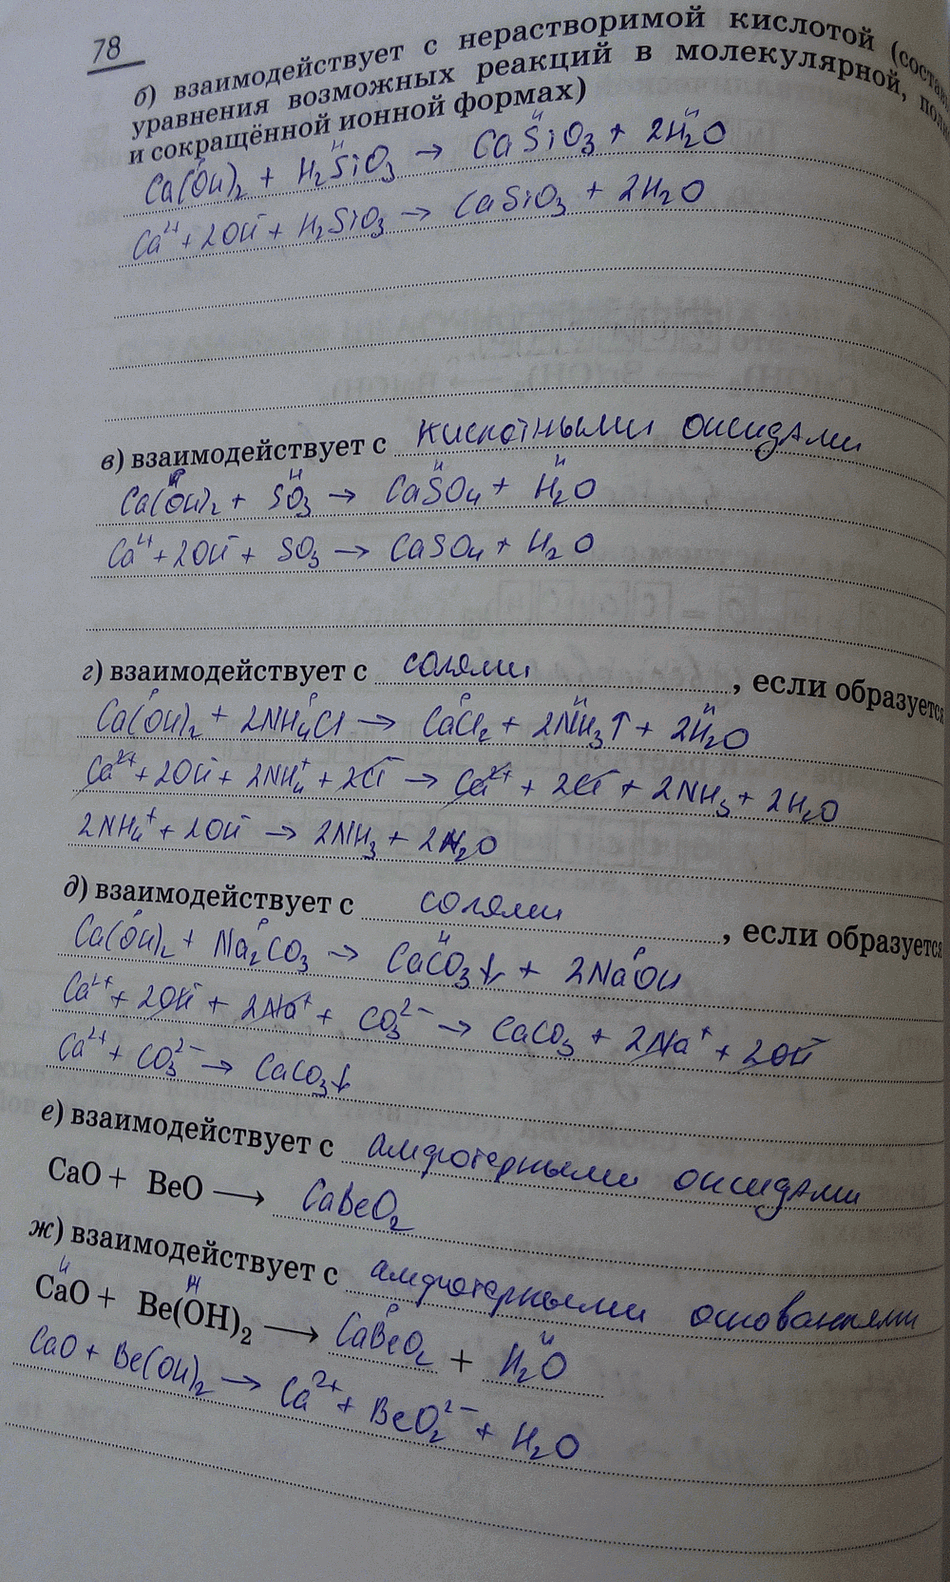 78
б) взаимодействует с нерастворимой кислотой (состав
уравнения возможных реакций в молекулярной, пол
и сокращённой ионной формах)
р н н н
Ca(OH)₂ + H₂SiO₃ → CaSiO₃ + 2H₂O
Ca²⁺ + 2OH⁻ + H₂SiO₃ → CaSiO₃ + 2H₂O
в) взаимодействует с кислотными оксидами
н н н
Ca(OH)₂ + SO₃ → CaSO₄ + H₂O
Ca²⁺ + 2OH⁻ + SO₃ → CaSO₄ + H₂O
г) взаимодействует с солями , если образуется
р р р н н
Ca(OH)₂ + 2NH₄Cl → CaCl₂ + 2NH₃↑ + 2H₂O
Ca²⁺ + 2OH⁻ + 2NH₄⁺ + 2Cl⁻ → Ca²⁺ + 2Cl⁻ + 2NH₃ + 2H₂O
2NH₄⁺ + 2OH⁻ → 2NH₃ + 2H₂O
д) взаимодействует с солями , если образуется
р р н р
Ca(OH)₂ + Na₂CO₃ → CaCO₃↓ + 2NaOH
Ca²⁺ + 2OH⁻ + 2Na⁺ + CO₃²⁻ → CaCO₃ + 2Na⁺ + 2OH⁻
Ca²⁺ + CO₃²⁻ → CaCO₃↓
е) взаимодействует с амфотерными оксидами
CaO + BeO → CaBeO₂
ж) взаимодействует с амфотерными основаниями
н н р н
CaO + Be(OH)₂ → CaBeO₂ + H₂O
CaO + Be(OH)₂ → Ca²⁺ + BeO₂²⁻ + H₂O